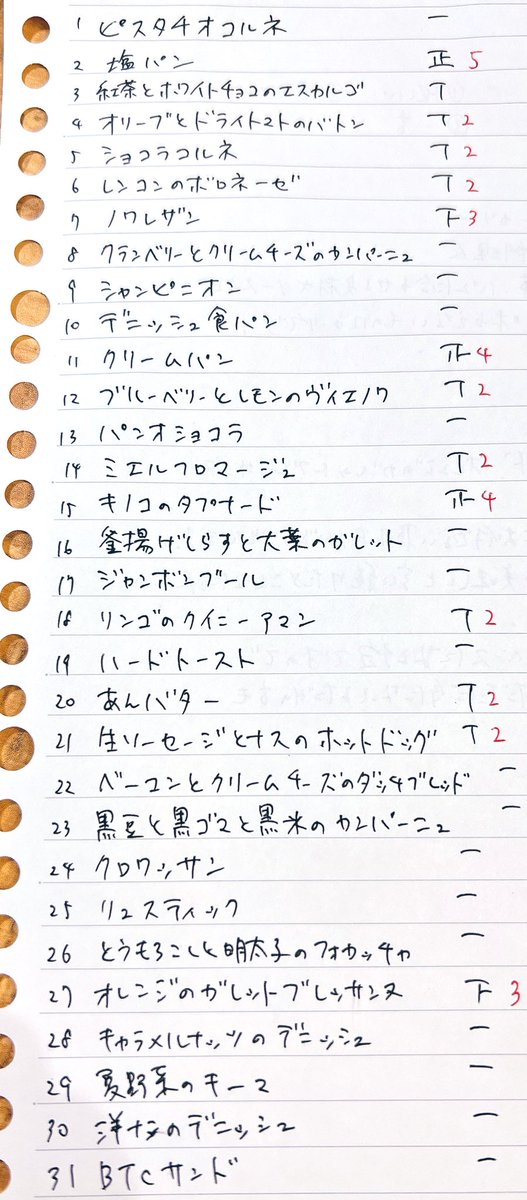 1 ピスタチオコルネ 一
2 塩パン 正 5
3 紅茶とホワイトチョコのエスカルゴ T
4 オリーブとドライトマトのバトン T 2
5 ショコラコルネ T 2
6 レンコンのボロネーゼ T 2
7 ノワレザン 下 3
8 クランベリーとクリームチーズのカンパーニュ 一
9 シャンピニオン 一
10 デニッシュ食パン 一
11 クリームパン 正 4
12 ブルーベリーとレモンのヴィエノワ T 2
13 パンオショコラ 一
14 ミエルフロマージュ T 2
15 キノコのタプナード 正 4
16 釜揚げしらすと大葉のガレット 一
17 ジャンボンブール 一
18 リンゴのクイニーアマン T 2
19 ハードトースト 一
20 あんバター T 2
21 生ソーセージとナスのホットドッグ T 2
22 ベーコンとクリームチーズのダッチブレッド 一
23 黒豆と黒ゴマと黒米のカンパーニュ 一
24 クロワッサン 一
25 リュスティック 一
26 とうもろこしと明太子のフォカッチャ 一
27 オレンジのガレットブレッサンヌ 下 3
28 キャラメルナッツのデニッシュ 一
29 夏野菜のキーマ 一
30 洋ナシのデニッシュ 一
31 BTCサンド 一